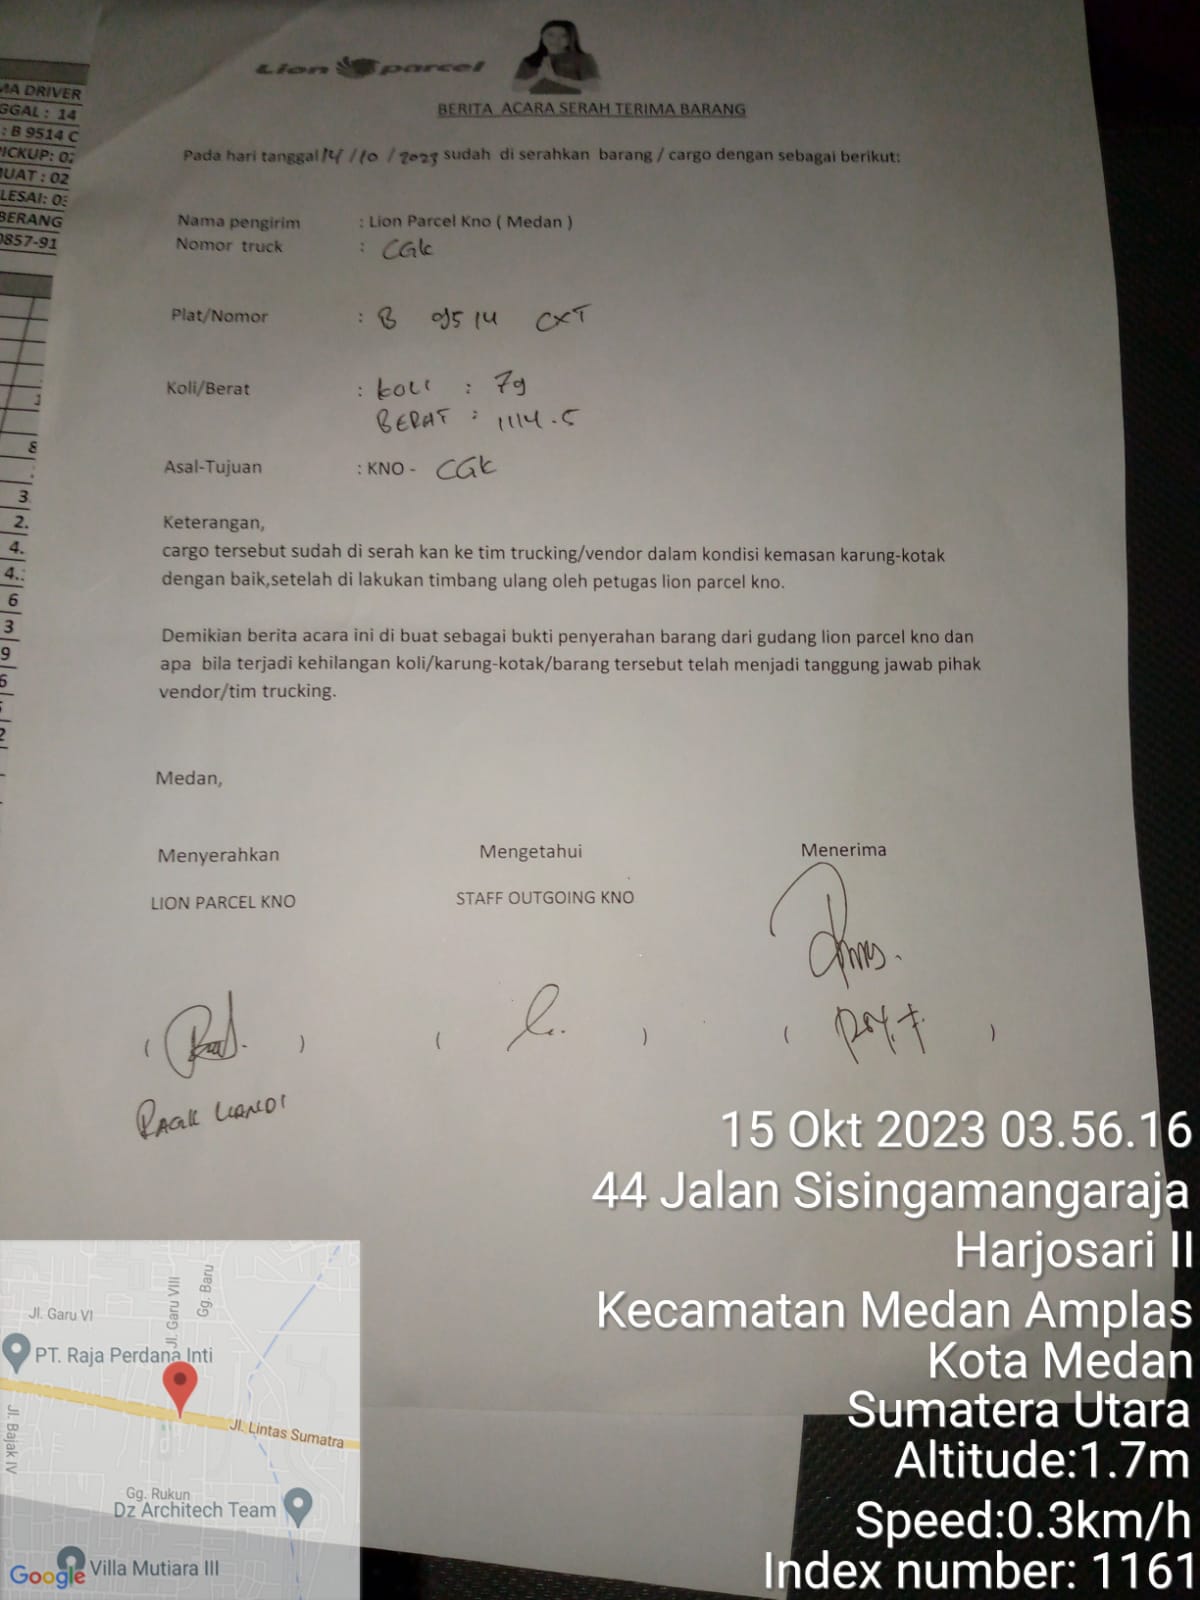 MA DRIVER
GGAL : 14
: B 9514 C
PICKUP: 02
UAT : 02
LESAI: 03
BERANG
0857-91
8
3
2.
4.
4.
6
3
9
6
2
Lion parcel
BERITA ACARA SERAH TERIMA BARANG
Pada hari tanggal 14 / 10 / 2023 sudah di serahkan barang / cargo dengan sebagai berikut:
Nama pengirim : Lion Parcel Kno ( Medan )
Nomor truck : CGK
Plat/Nomor : B 9514 CXT
Koli/Berat : KOLI : 79
BERAT : 1114.5
Asal-Tujuan : KNO - CGK
Keterangan,
cargo tersebut sudah di serah kan ke tim trucking/vendor dalam kondisi kemasan karung-kotak
dengan baik,setelah di lakukan timbang ulang oleh petugas lion parcel kno.
Demikian berita acara ini di buat sebagai bukti penyerahan barang dari gudang lion parcel kno dan
apa bila terjadi kehilangan koli/karung-kotak/barang tersebut telah menjadi tanggung jawab pihak
vendor/tim trucking.
Medan,
Menyerahkan Mengetahui Menerima
LION PARCEL KNO STAFF OUTGOING KNO
( ) ( ) ( )
15 Okt 2023 03.56.16
44 Jalan Sisingamangaraja
Harjosari II
Kecamatan Medan Amplas
Kota Medan
Sumatera Utara
Altitude:1.7m
Speed:0.3km/h
Index number: 1161
Jl. Garu VI
Jl. Garu VIII
Gg. Baru
PT. Raja Perdana Inti
Jl. Bajak IV
Jl. Lintas Sumatra
Gg. Rukun
Dz Architech Team
Villa Mutiara III
Google